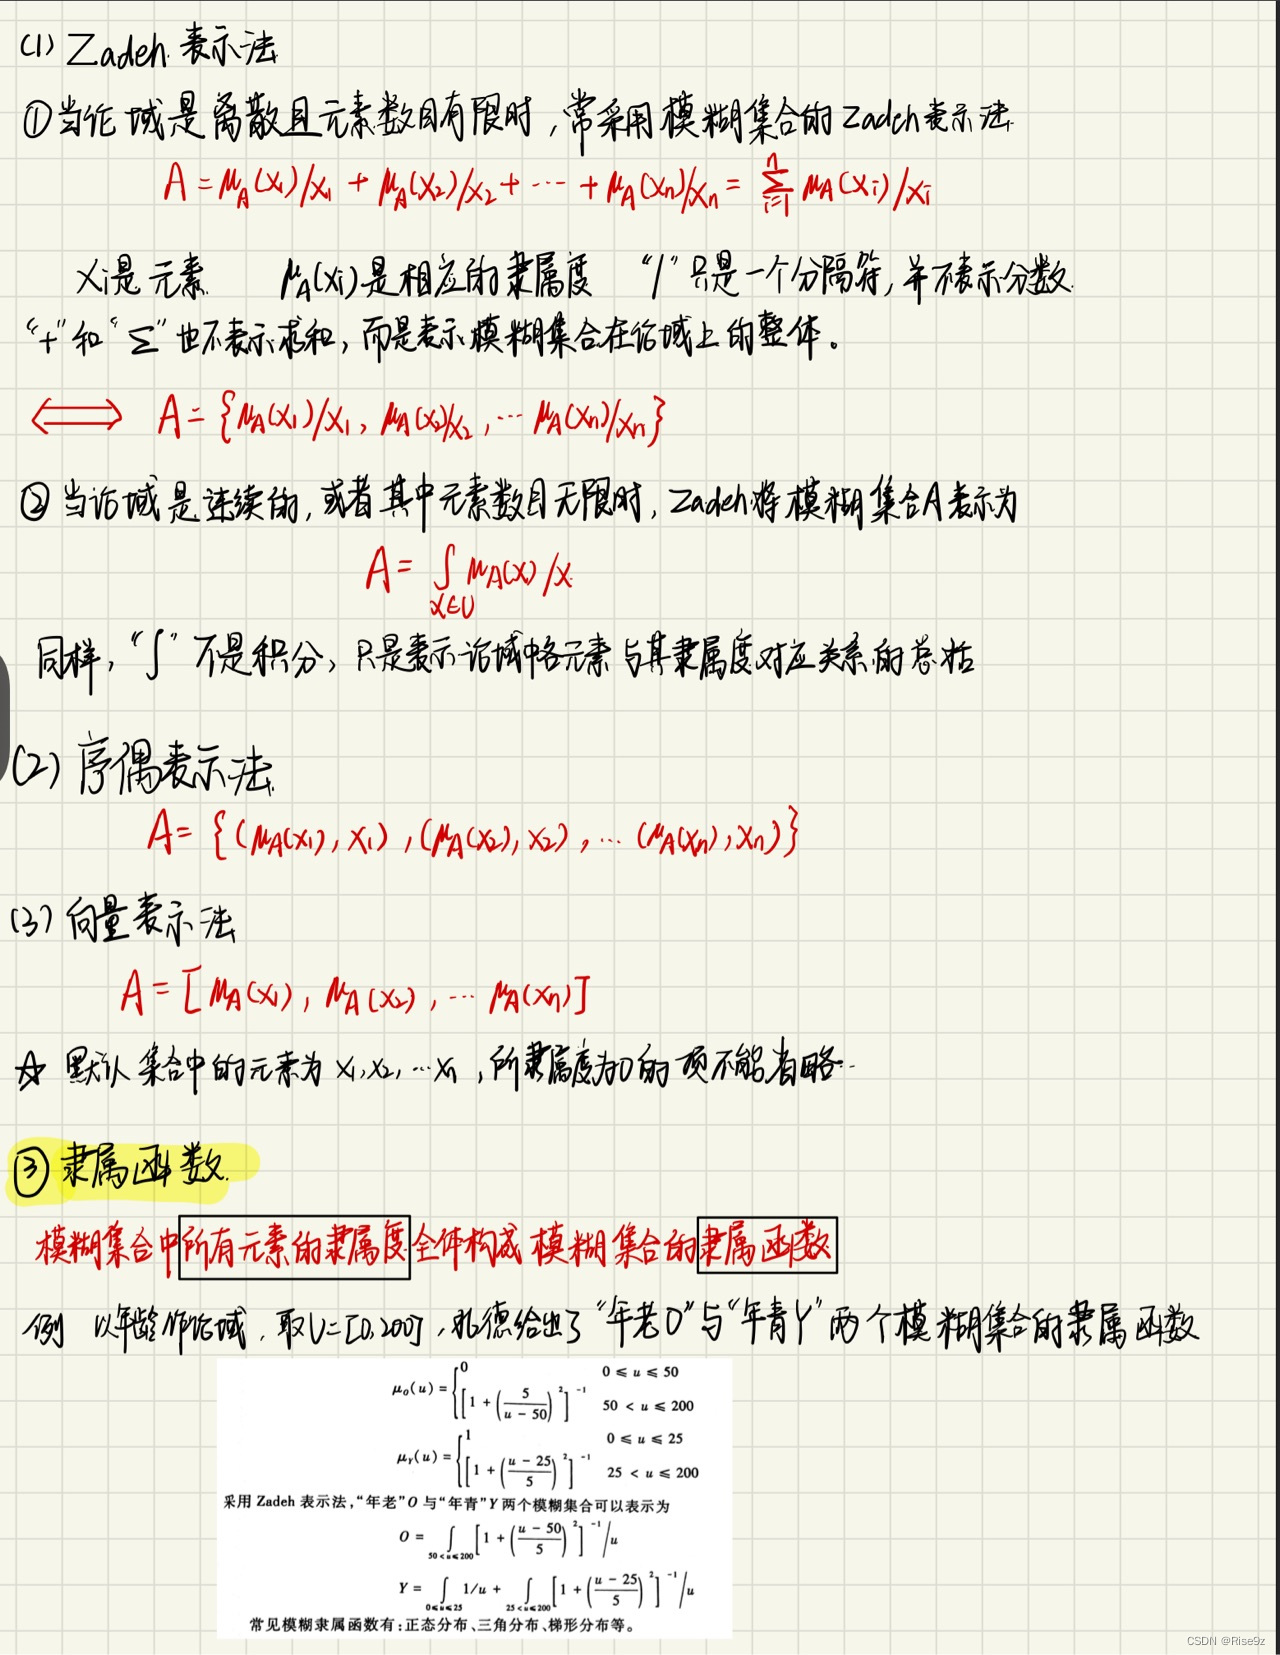 (1) Zadeh 表示法
①当论域是离散且元素数目有限时，常采用模糊集合的Zadeh表示法
A = μA(x₁)/x₁ + μA(x₂)/x₂ + ⋯ + μA(xn)/xn = Σ(i=1→n) μA(xi)/xi
xi是元素 μA(xi)是相应的隶属度 “/”只是一个分隔符，并不表示分数.
“+”和“Σ”也不表示求和，而是表示模糊集合在论域上的整体。
⟺ A = {μA(x₁)/x₁, μA(x₂)/x₂, ⋯ μA(xn)/xn}
② 当论域是连续的，或者其中元素数目无限时，Zadeh将模糊集合A表示为
A = ∫(x∈U) μA(x)/x
同样，“∫”不是积分，只是表示论域中各元素与其隶属度对应关系的总括
(2) 序偶表示法
A = {(μA(x₁), x₁), (μA(x₂), x₂), ⋯ (μA(xn), xn)}
(3) 向量表示法
A = [μA(x₁), μA(x₂), ⋯ μA(xn)]
☆ 默认集合中的元素为 x₁, x₂, ⋯xn，所隶属度为0的项不能省略⋯
③ 隶属函数.
模糊集合中所有元素的隶属度全体构成模糊集合的隶属函数
例 以年龄作论域，取U=[0,200]，扎德给出了“年老O”与“年青Y”两个模糊集合的隶属函数
μO(u) = { 0  0 ≤ u ≤ 50
[1 + (5/(u − 50))²]⁻¹  50 < u ≤ 200
μY(u) = { 1  0 ≤ u ≤ 25
[1 + ((u − 25)/5)²]⁻¹  25 < u ≤ 200
采用 Zadeh 表示法,“年老”O 与“年青”Y 两个模糊集合可以表示为
O = ∫(50<u≤200) [1 + ((u − 50)/5)²]⁻¹/u
Y = ∫(0≤u≤25) 1/u + ∫(25<u≤200) [1 + ((u − 25)/5)²]⁻¹/u
常见模糊隶属函数有:正态分布、三角分布、梯形分布等。
CSDN @Rise9z